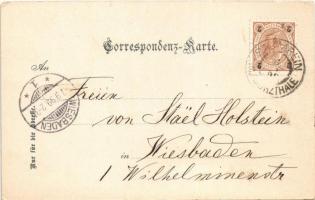 Correspondenz-Karte.
An
Freien
von Staël Holstein
in Wiesbaden
1 Wilhelminenstr
Nur für die Adresse.
WIESBADEN